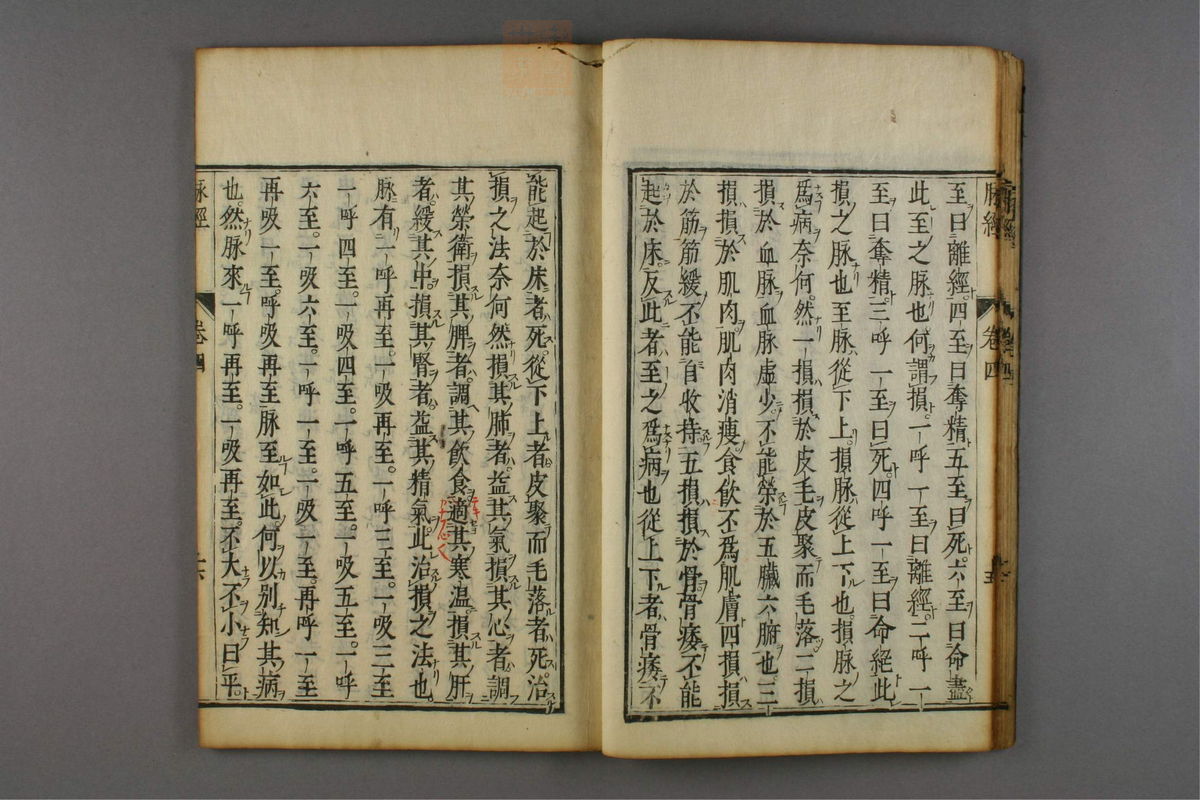 至曰離經四至曰奪精五至曰死六至曰命盡
此至之脉也何謂損一呼一至曰離經二呼一
至曰奪精三呼一至曰死四呼一至曰命絕此
損之脉也至脉從下上損脉從上下也損脉之
爲病奈何然一損損於皮毛皮聚而毛落二損
損於血脉血脉虛少不能榮於五臟六腑也三
損損於肌肉肌肉消瘦食飲不爲肌膚四損損
於筋筋緩不能自收持五損損於骨骨痿不能
起於床反此者至之爲病也從上下者骨痿不
脉經 卷四 五
能起於床者死從下上者皮聚而毛落者死治
損之法奈何然損其肺者益其氣損其心者調
其榮衛損其脾者調其飲食適其寒温損其肝
者緩其中損其腎者益其精氣此治損之法也
脉有一呼再至一吸再至一呼三至一吸三至
一呼四至一吸四至一呼五至一吸五至一呼
六至一吸六至一呼一至一吸一至再呼一至
再吸一至呼吸再至脉至如此何以别知其病
也然脉來一呼再至一吸再至不大不小曰平
脉經 卷四 六